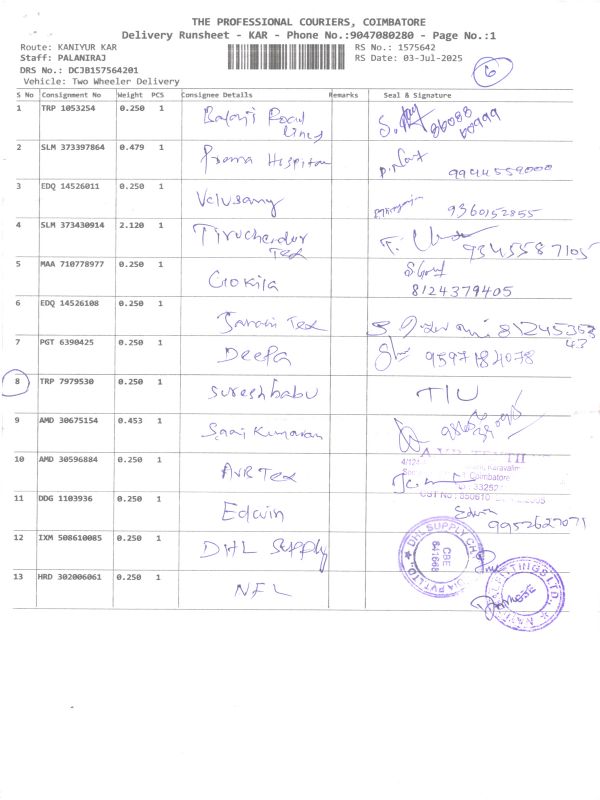 THE PROFESSIONAL COURIERS, COIMBATORE
Delivery Runsheet - KAR - Phone No.:9047080280 - Page No.:1
Route: KANIYUR KAR RS No.: 1575642
Staff: PALANIRAJ RS Date: 03-Jul-2025
DRS No.: DCJB157564201 6
Vehicle: Two Wheeler Delivery
S No Consignment No Weight PCS Consignee Details Remarks Seal & Signature
1 TRP 1053254 0.250 1 Balaji Road Lines 86088
2 SLM 373397864 0.479 1 Prema Hospital 9944559000
3 EDQ 14526011 0.250 1 Velusamy 9360152855
4 SLM 373430914 2.120 1 Tiruchendur Tex 9345587105
5 MAA 710778977 0.250 1 Gokila
8124379405
6 EDQ 14526108 0.250 1 Tex 8124535343
7 PGT 6390425 0.250 1 Deepa 9597184078
8 TRP 7979530 0.250 1 Sureshbabu TIU
9 AMD 30675154 0.453 1 Kumaran
10 AMD 30596884 0.250 1 AVR Tex
Coimbatore
11 DDG 1103936 0.250 1 Edwin Edwin
9952627071
12 IXM 508610085 0.250 1 DHL Supply DHL SUPPLY CBE 641668
13 HRD 302006061 0.250 1 NFL